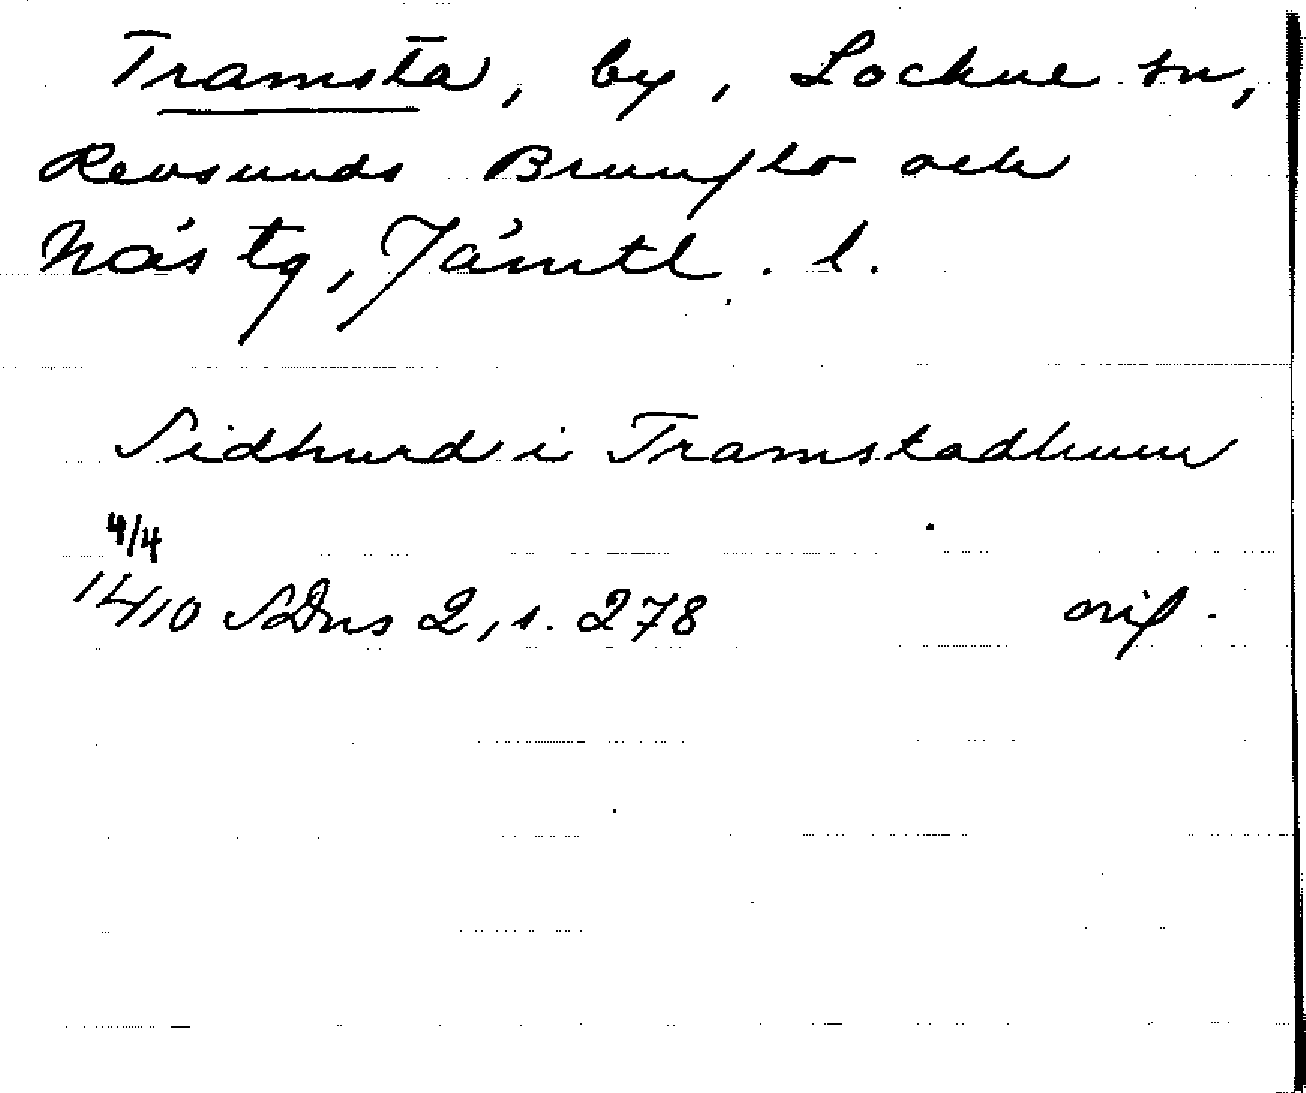 Tramsta, by, Lockne sn,
Revsunds Brunflo och
Näs tg, Jämtl. l.
Sidhurd i Tramstadhum
4/4
1410 SDns 2, s. 278 orig.